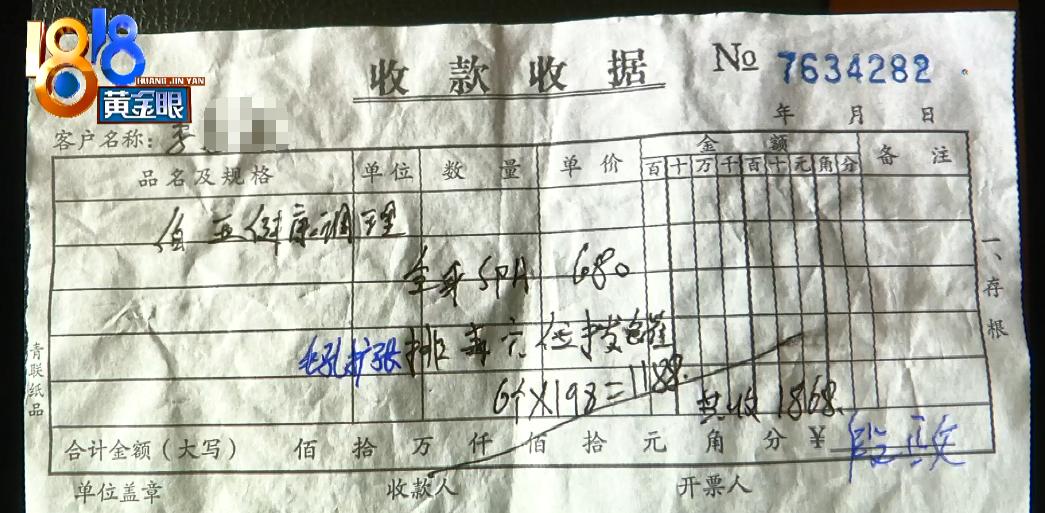 1818
HUANG JIN YAN
黄金眼
收款收据 № 7634282
年 月 日
客户名称：李
品名及规格 单位 数量 单价 金额 备注
百 十 万 千 百 十 元 角 分
健康调理
全身SPA 680
毛孔扩张 排毒穴位拔罐
6个×198=1188.
共收1868.
合计金额（大写） 佰 拾 万 仟 佰 拾 元 角 分 ¥
单位盖章 收款人 开票人
一、存根
青联纸品